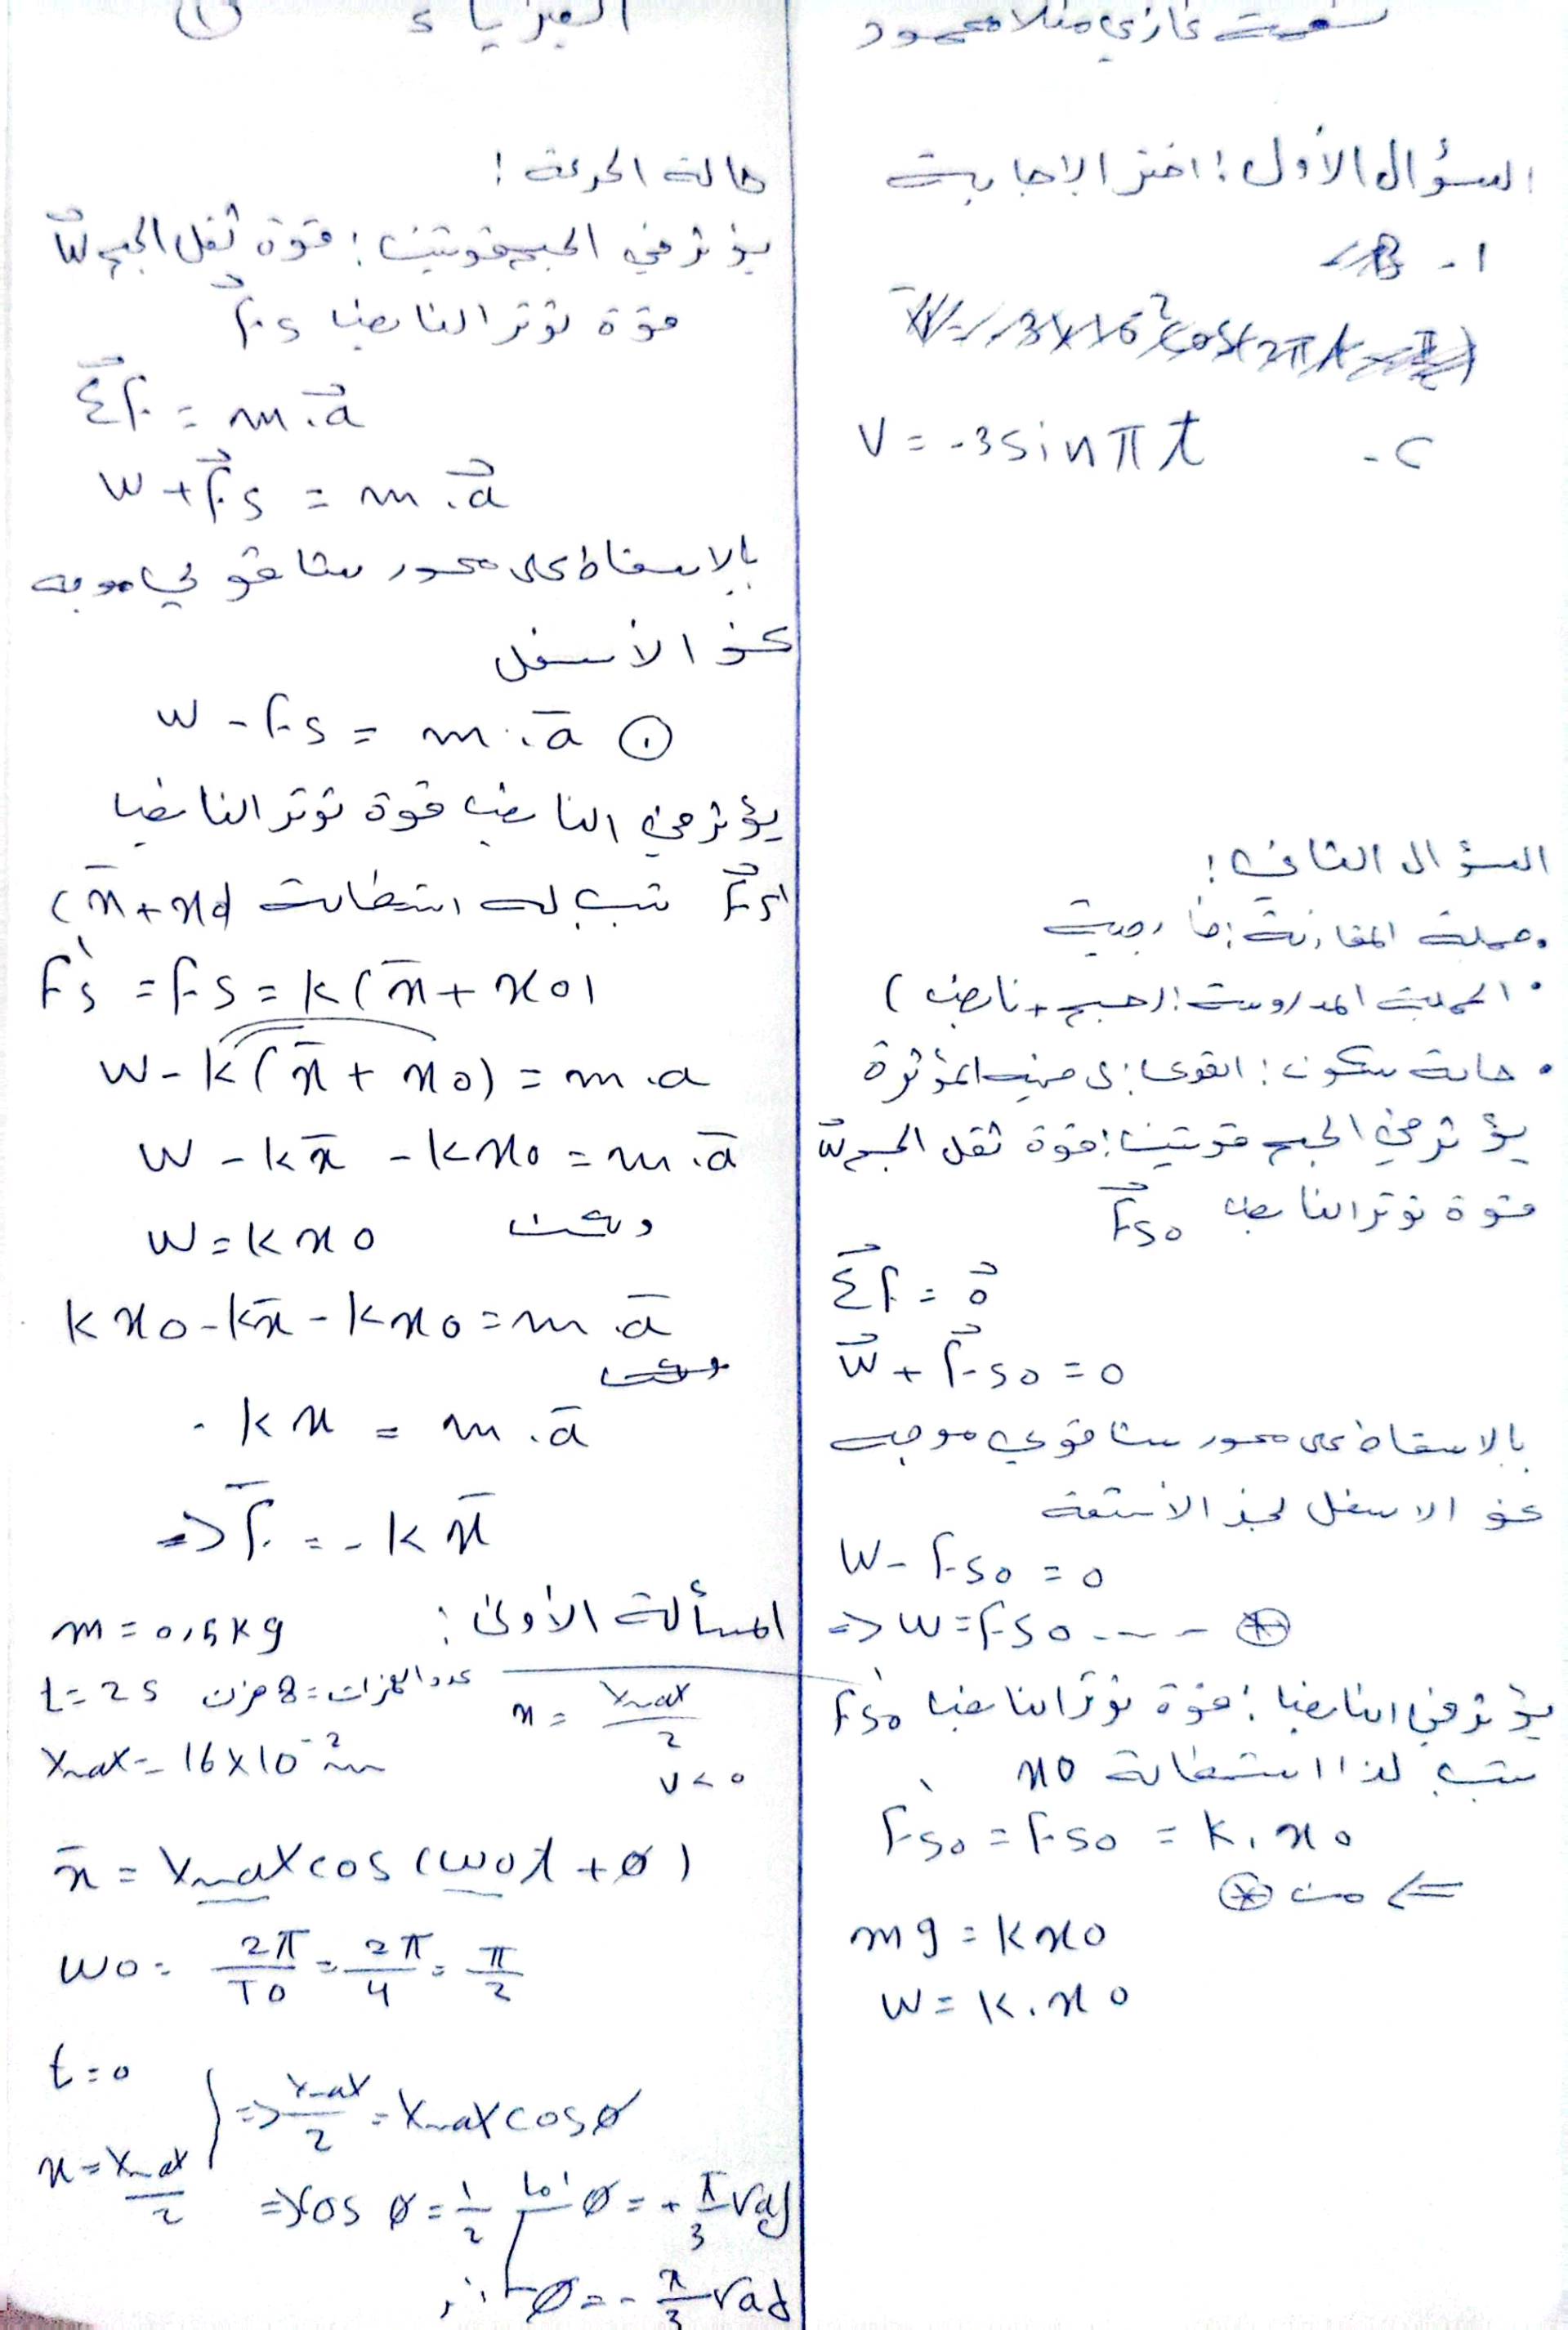 الفيزياء
السؤال الأول: اختر الإجابة
1- B
V = -3 sin π t -2
السؤال الثاني:
. جملة المقارنة: خارجية
. الجملة المدروسة: (جسم + نابض)
. حالة سكون: القوى الخارجية المؤثرة
يؤثر في الجسم قوتين: قوة ثقل الجسم W⃗
قوة توتر النابض F⃗s0
ΣF⃗ = 0⃗
W⃗ + F⃗s0 = 0
بالاسقاط على محور شاقولي موجه
نحو الاسفل لجهة
W - Fs0 = 0
=> W = Fs0 ---- ⊛
يؤثر في النابض: قوة توتر النابض F's0
تسبب لها استطالة x0
F's0 = Fs0 = k . x0
<= من ⊛
mg = k x0
W = k . x0
حالة الحركة:
يؤثر في الجسم قوتين: قوة ثقل الجسم W⃗
قوة توتر النابض F⃗s
ΣF⃗ = m . a⃗
W + F⃗s = m . a⃗
بالاسقاط على محور شاقولي موجه
نحو الأسفل
W - Fs = m . a̅ ①
يؤثر في النابض قوة توتر النابض
F⃗s' تسبب له استطالة (x̅ + x0)
F's = Fs = k (x̅ + x0)
W - k (x̅ + x0) = m . a
W - k x̅ - k x0 = m . a̅
ولكن W = k x0
k x0 - k x̅ - k x0 = m . a̅
- k x = m . a̅
=> F̅ = - k x̅
المسألة الأولى: m = 0,5 kg
t = 2 s عدد الهزات = 8 هزن x = Xmax/2
Xmax = 16 × 10⁻² m v < 0
x̅ = Xmax cos (ω0 t + φ)
ω0 = 2π/T0 = 2π/4 = π/2
t = 0
x = Xmax/2 } => Xmax/2 = Xmax cos φ
=> cos φ = 1/2 إما φ = + π/3 rad
أو φ = - π/3 rad